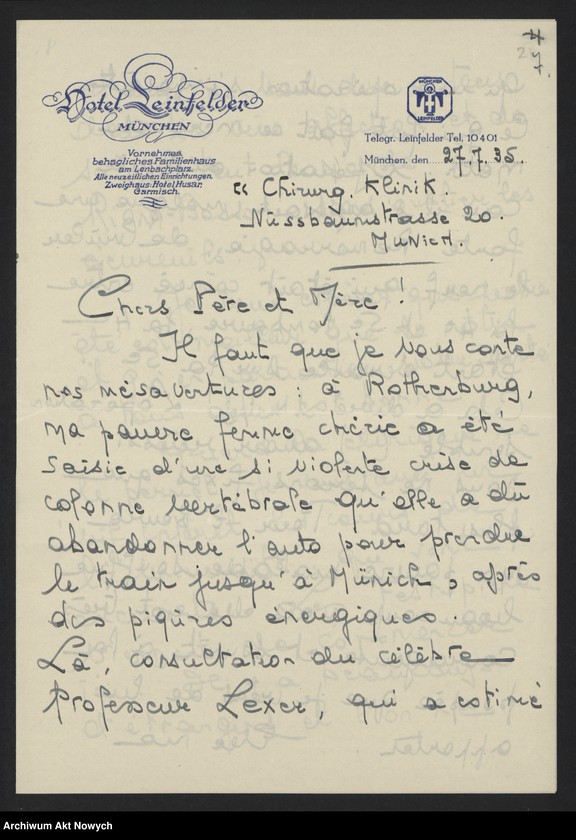 Hotel Leinfelder
MÜNCHEN
Vornehmes
behagliches Familienhaus
am Lenbachplatz.
Alle neuzeitlichen Einrichtungen.
Zweighaus: Hotel Husar,
Garmisch.
MÜNCHEN
LEINFELDER
Telegr. Leinfelder Tel. 10401
München, den 27.7.35.
Chirurg. Klinik.
Nussbaumstrasse 20.
Munich.
Chers Père et Mère !
Il faut que je vous conte
nos mésaventures : à Rothenburg,
ma pauvre femme chérie a été
saisie d'une si violente crise de
colonne vertébrale qu'elle a dû
abandonner l'auto pour prendre
le train jusqu'à Münich, après
des piqûres énergiques.
Là, consultation du célèbre
Professeur Lexer, qui a estimé
Archiwum Akt Nowych